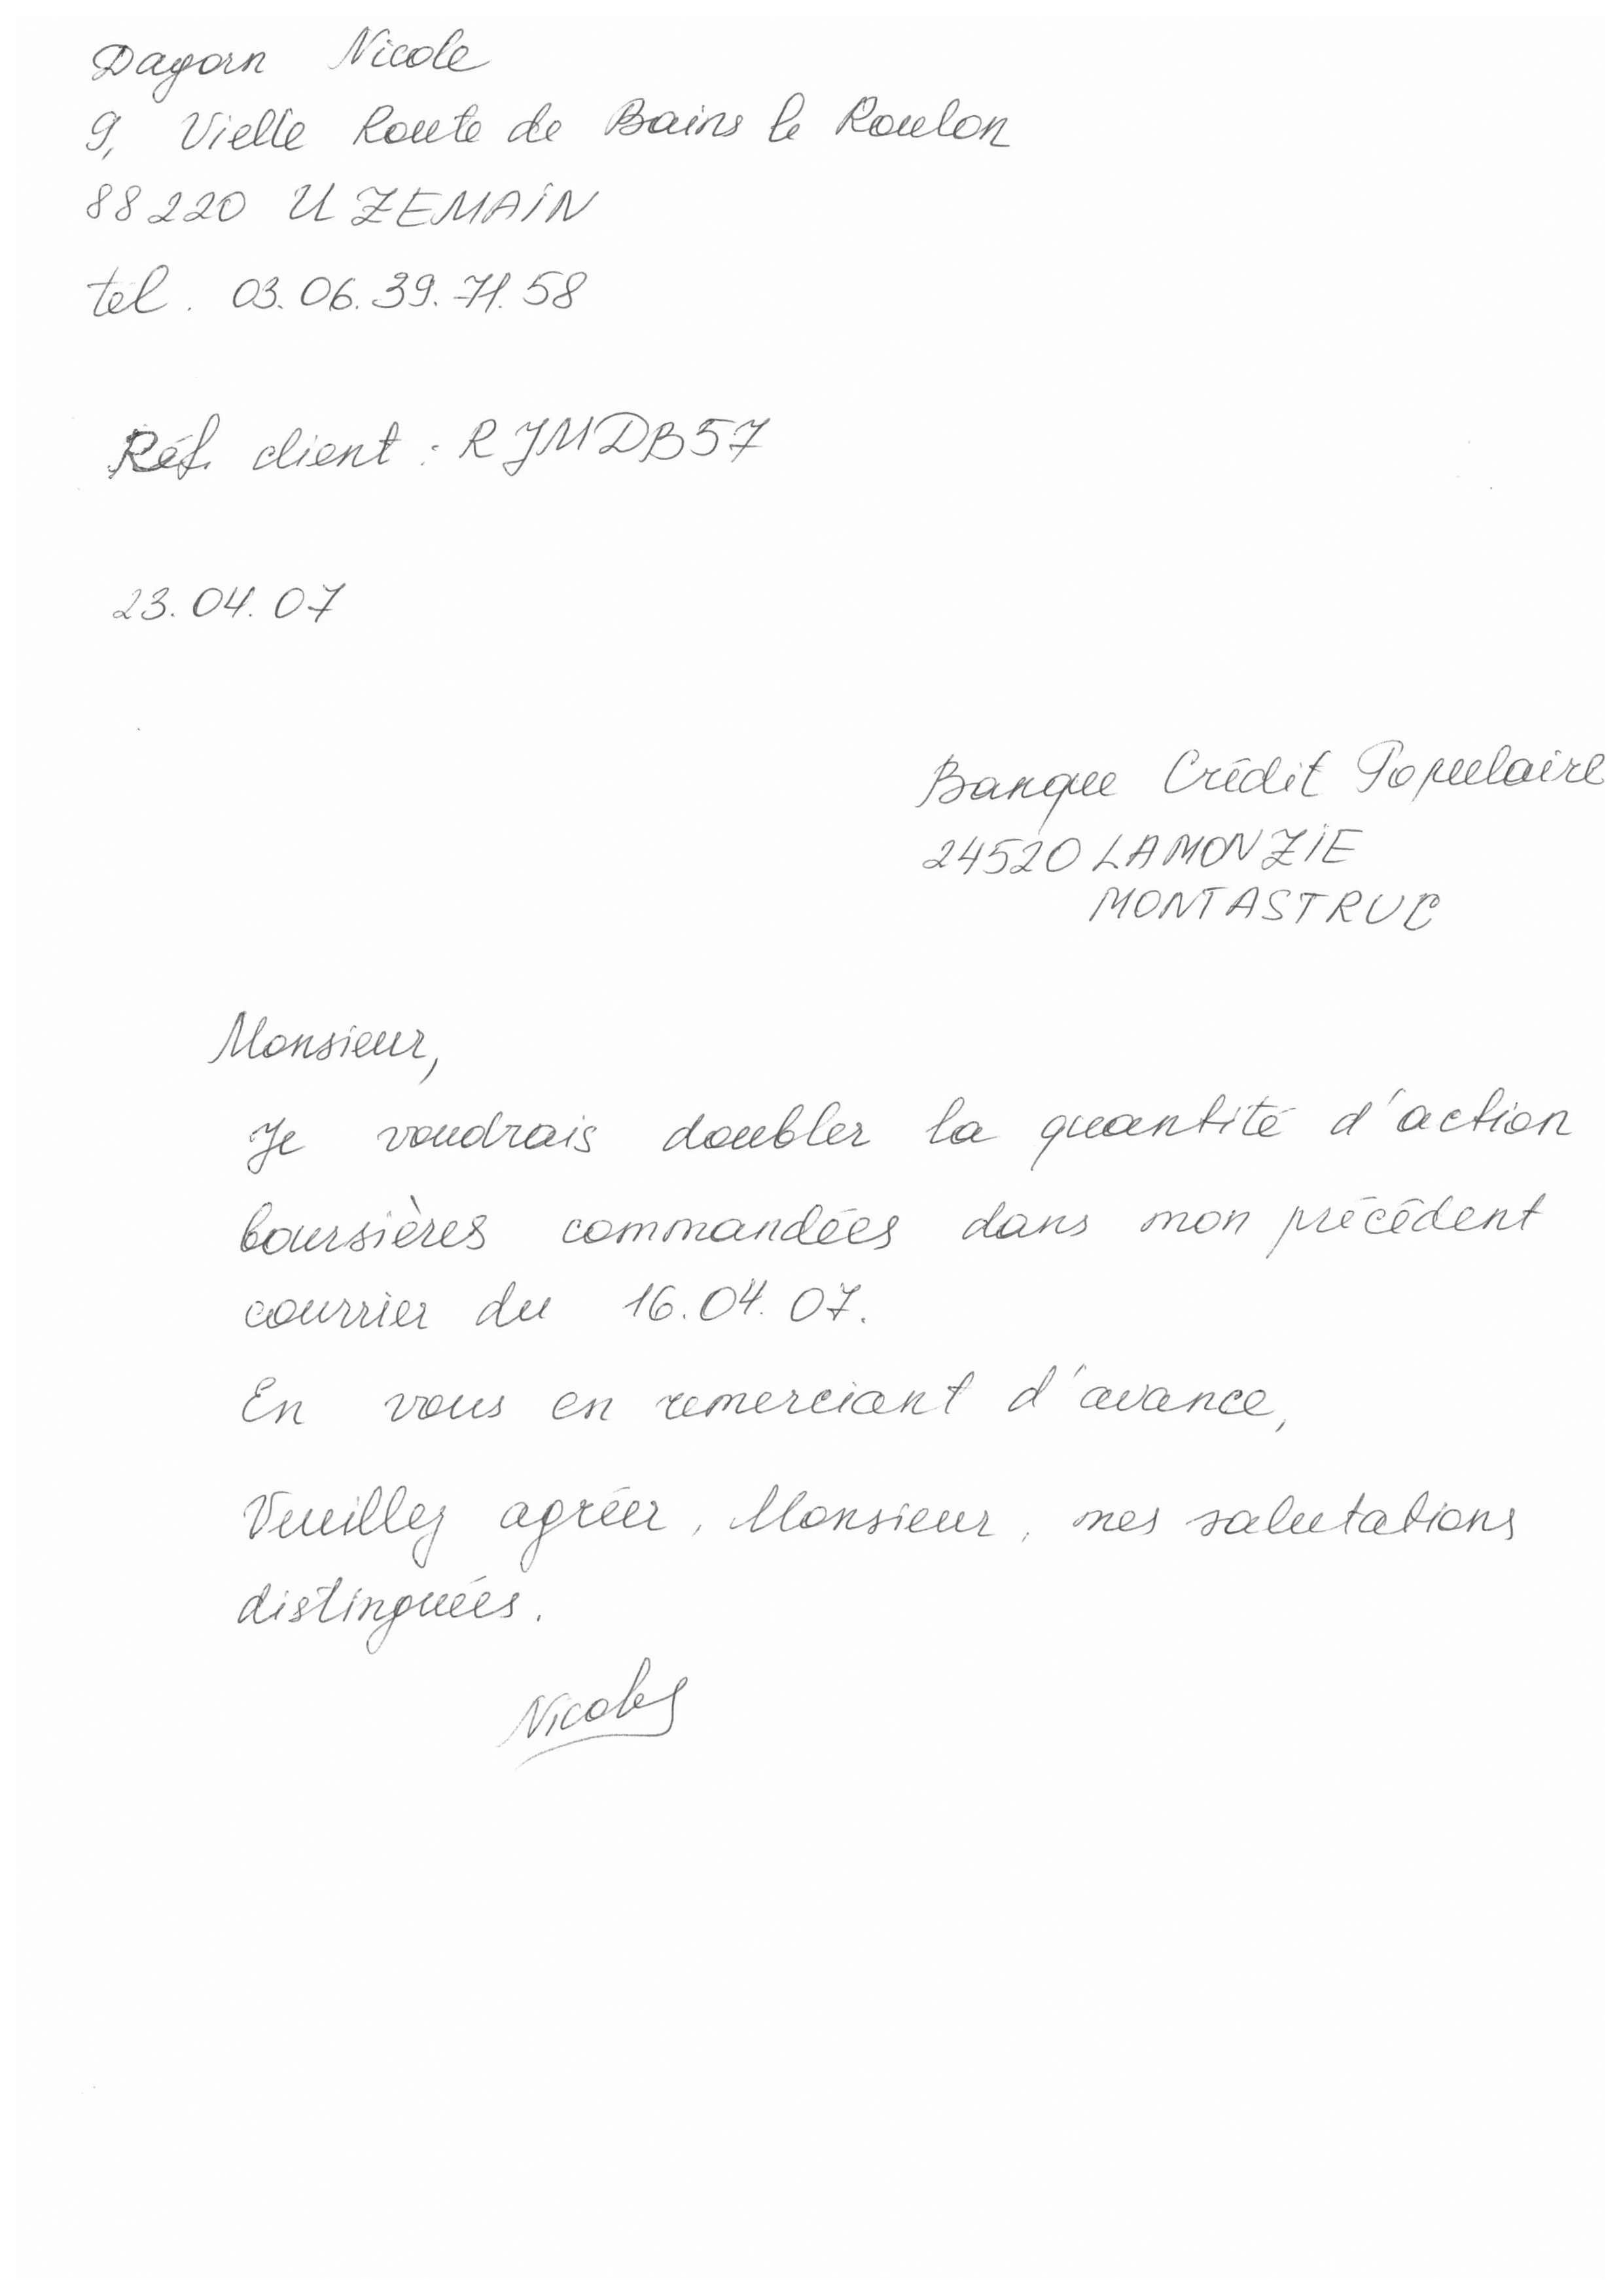 Dagorn Nicole
9, Vielle Route de Bains le Roulon
88220 UZEMAIN
tél. 03.06.39.71.58
Réf. client : RJMDB57
23.04.07
Banque Crédit Populaire
24520 LAMONZIE
MONTASTRUC
Monsieur,
Je voudrais doubler la quantité d'action
boursières commandées dans mon précédent
courrier du 16.04.07.
En vous en remerciant d'avance,
Veuillez agréer, Monsieur, mes salutations
distinguées.